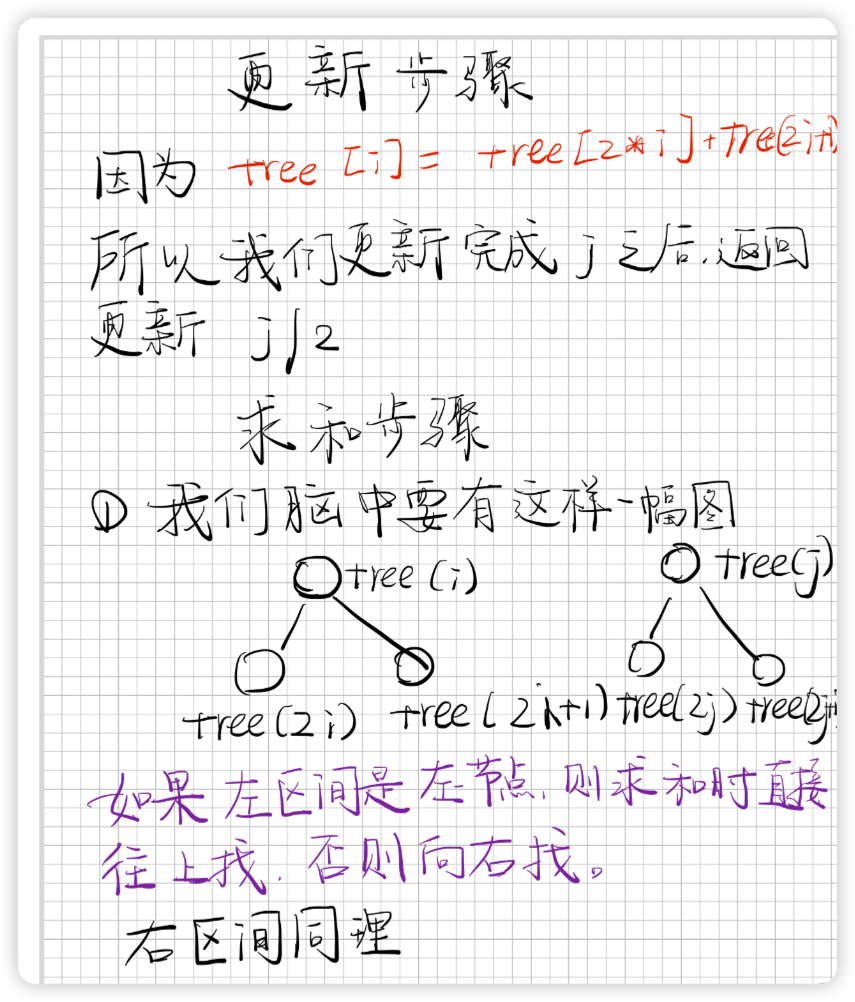 更新步骤
因为 tree [i] = tree [2*i]+tree(2i+1)
所以我们更新完成j之后,返回
更新 j/2
求和步骤
① 我们脑中要有这样一幅图
tree(i) tree(j)
tree(2i) tree(2i+1) tree(2j) tree(2j+1
如果左区间是左节点,则求和时直接
往上找,否则向右找。
右区间同理